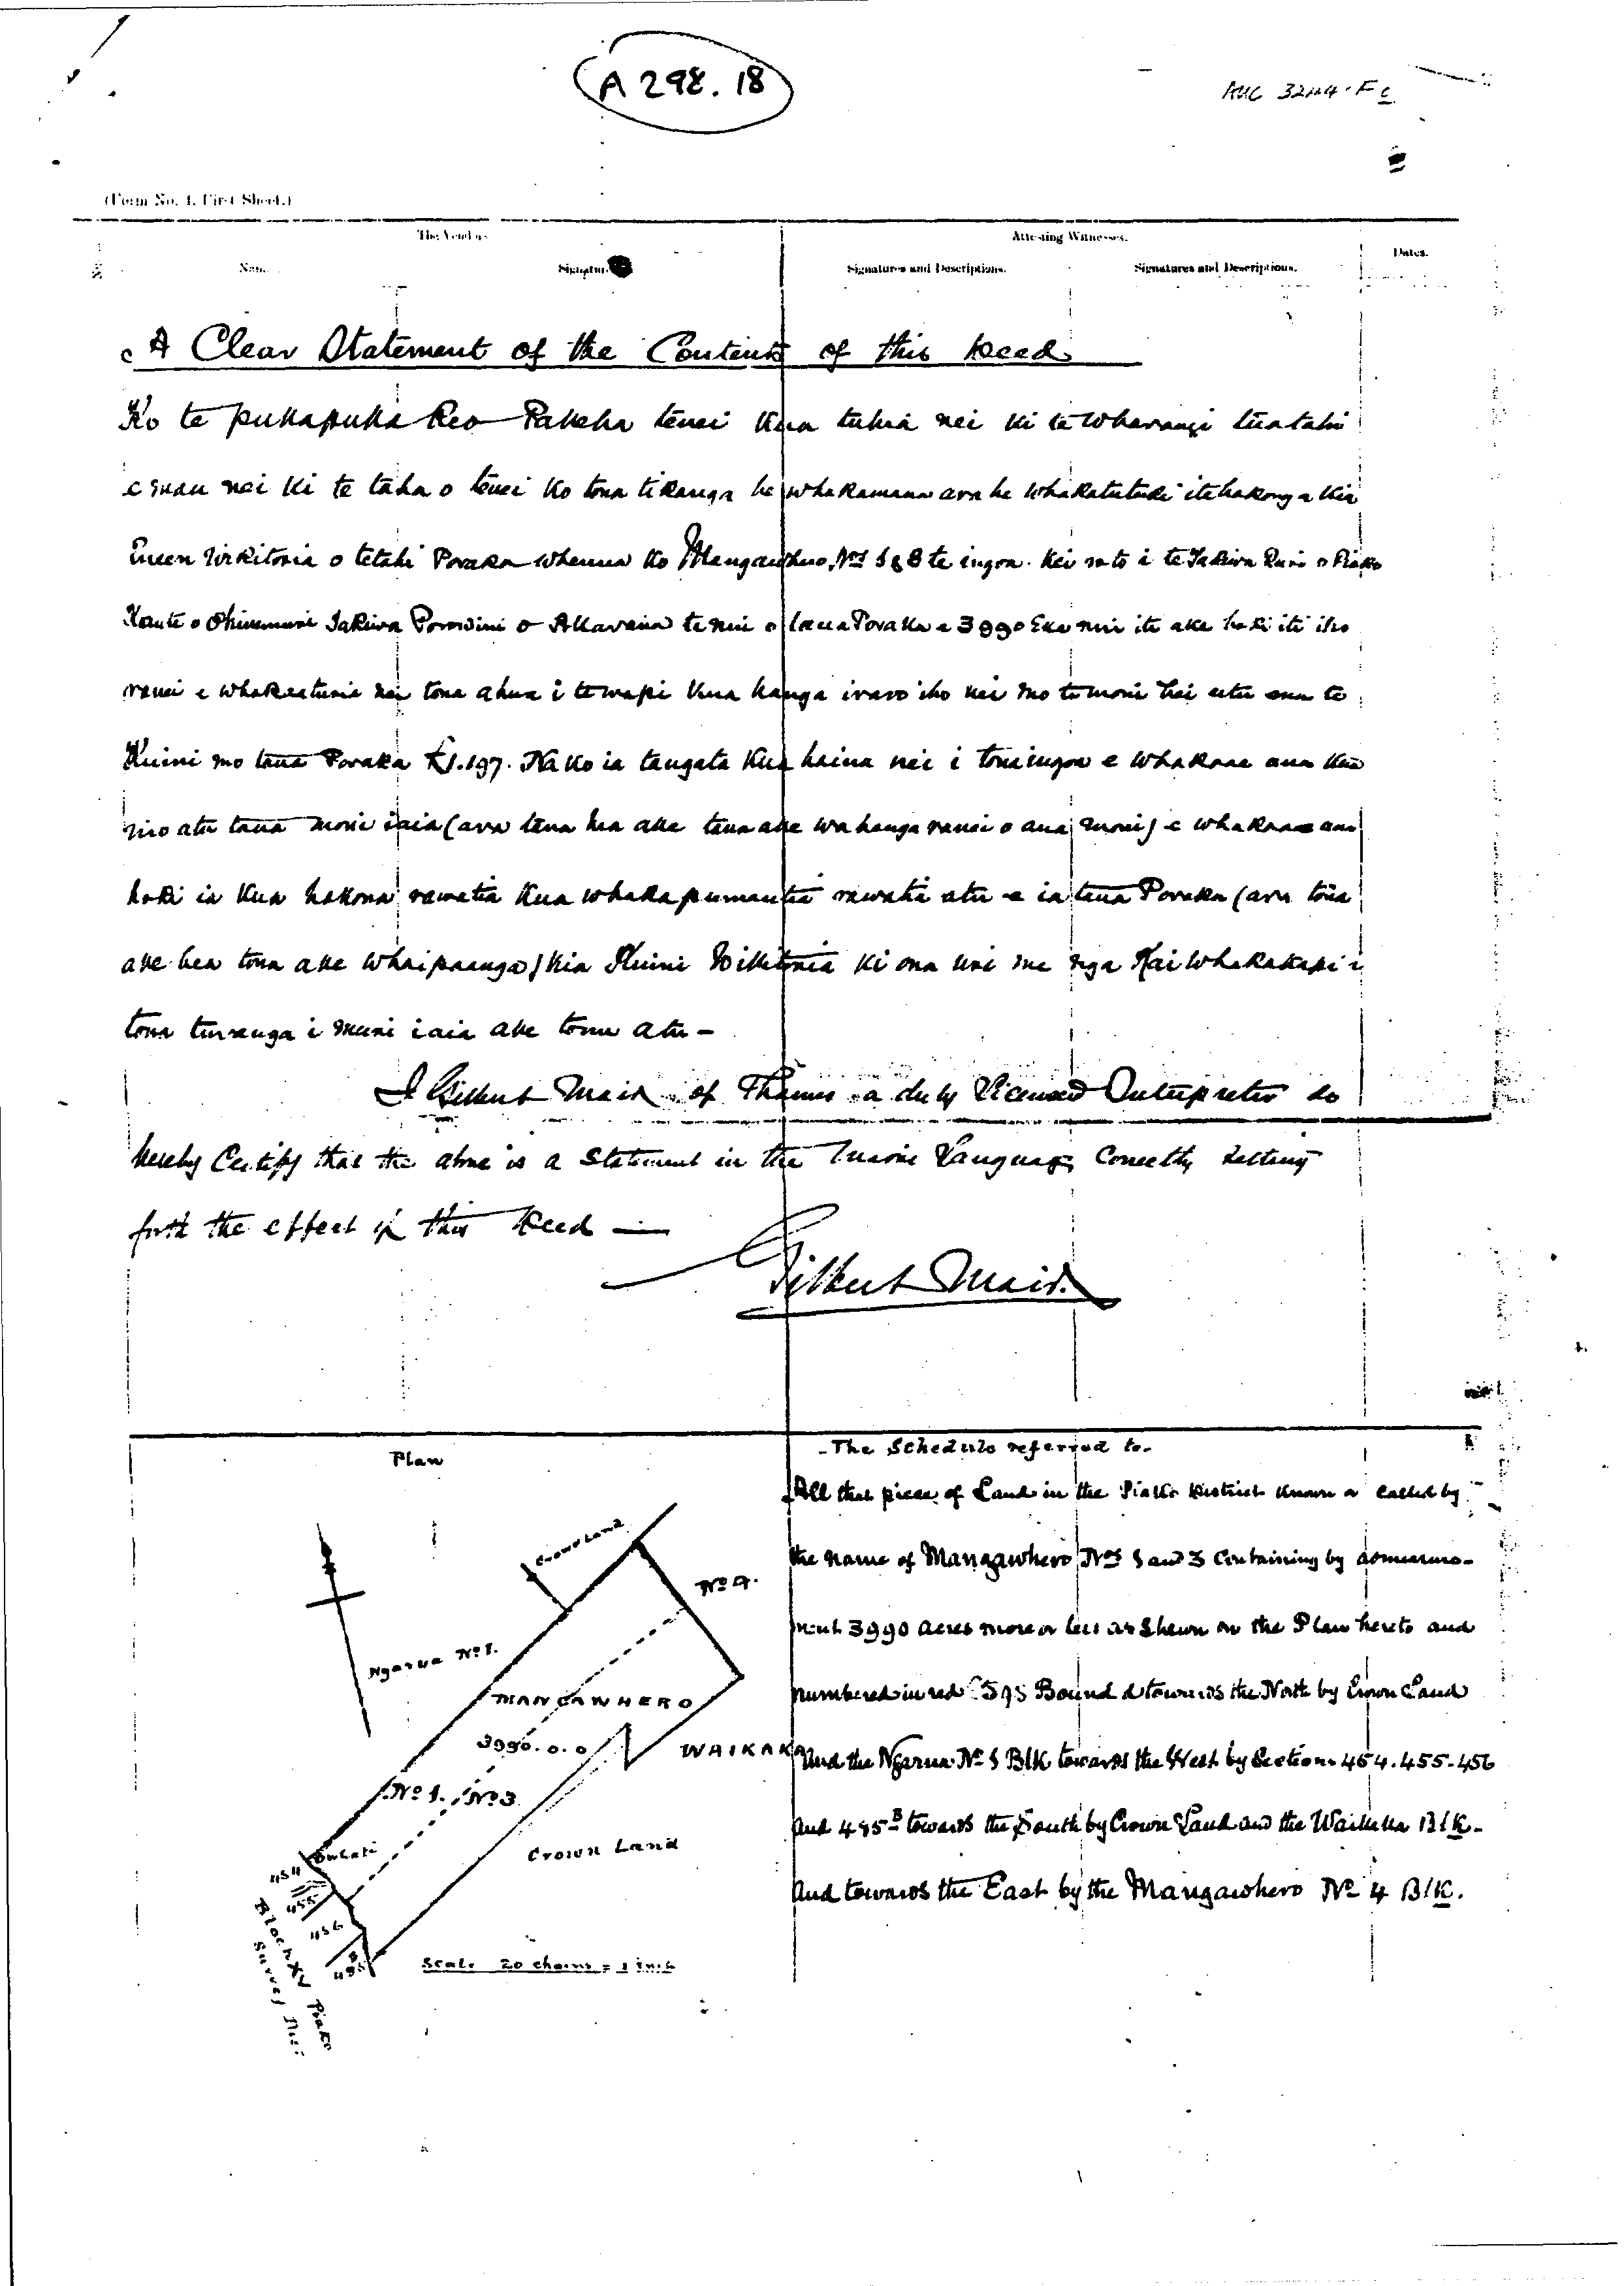 A 298.18
AUC 3244.F
(Form No. 1. First Sheet.)
The Vendors
Attesting Witnesses.
Dates.
Name
Signature
Signatures and Descriptions.
Signatures and Descriptions.
A Clear Statement of the Contents of this Deed
Ko te pukapuka Reo Pakeha tenei kua tuhia nei ki te wharangi tuatahi
e mau nei ki te taha o tenei ko tona tikanga he whakamana ara he whakatutuki i te hokonga kia
Queen Wikitoria o tetahi Poraka whenua ko Mangawhero Nos 1 & 3 te ingoa. Kei roto i te Takiwa Ruri o Piako
Kaute o Ohinemuri Takiwa Porowini o Akarana te nui o taua Poraka e 3990 Eka nui ake hoki iti iho
ranei e whakaaturia nei tona ahua i te mapi kua hanga i raro iho nei mo te moni hei utu ma te
Kuini mo taua Poraka £1.197. Na ko ia tangata kua haina nei i tona ingoa e whakaae ana kua
riro atu taua moni i aia (ara tena hea ake tena ake wahanga ranei o aua moni) e whakaae ana
hoki ia kua hokona rawatia kua whakapumautia rawatia atu e ia taua Poraka (ara tona
ake hea tona ake whaipaanga) kia Kuini Wikitoria ki ona uri me nga Kai Whakakapi i
tona turanga i muri i aia ake tonu atu -
I Gilbert Mair of Thames a duly Licensed Interpreter do
hereby Certify that the above is a Statement in the Maori Language Correctly setting
forth the effect of this Deed —
Gilbert Mair.
Plan
The Schedule referred to.
All that piece of Land in the Piako District known or called by
the name of Mangawhero Nos 1 and 3 Containing by admeasure-
ment 3990 acres more or less as shewn on the Plan hereto and
numbered in red Bounded towards the North by Crown Land
And the Ngarua No 1 Blk towards the West by Sections 454.455.456
And 495B towards the South by Crown Land and the Waikaka Blk.
And towards the East by the Mangawhero No 4 Blk.
Crown Land
No 4.
Ngarua No 1.
MANGAWHERO
3990.0.0
WAIKAKA
No 1.
No 3
Crown Land
454
455
456
495
Block XI Piako
Survey Dist
Scale 20 chains = 1 inch